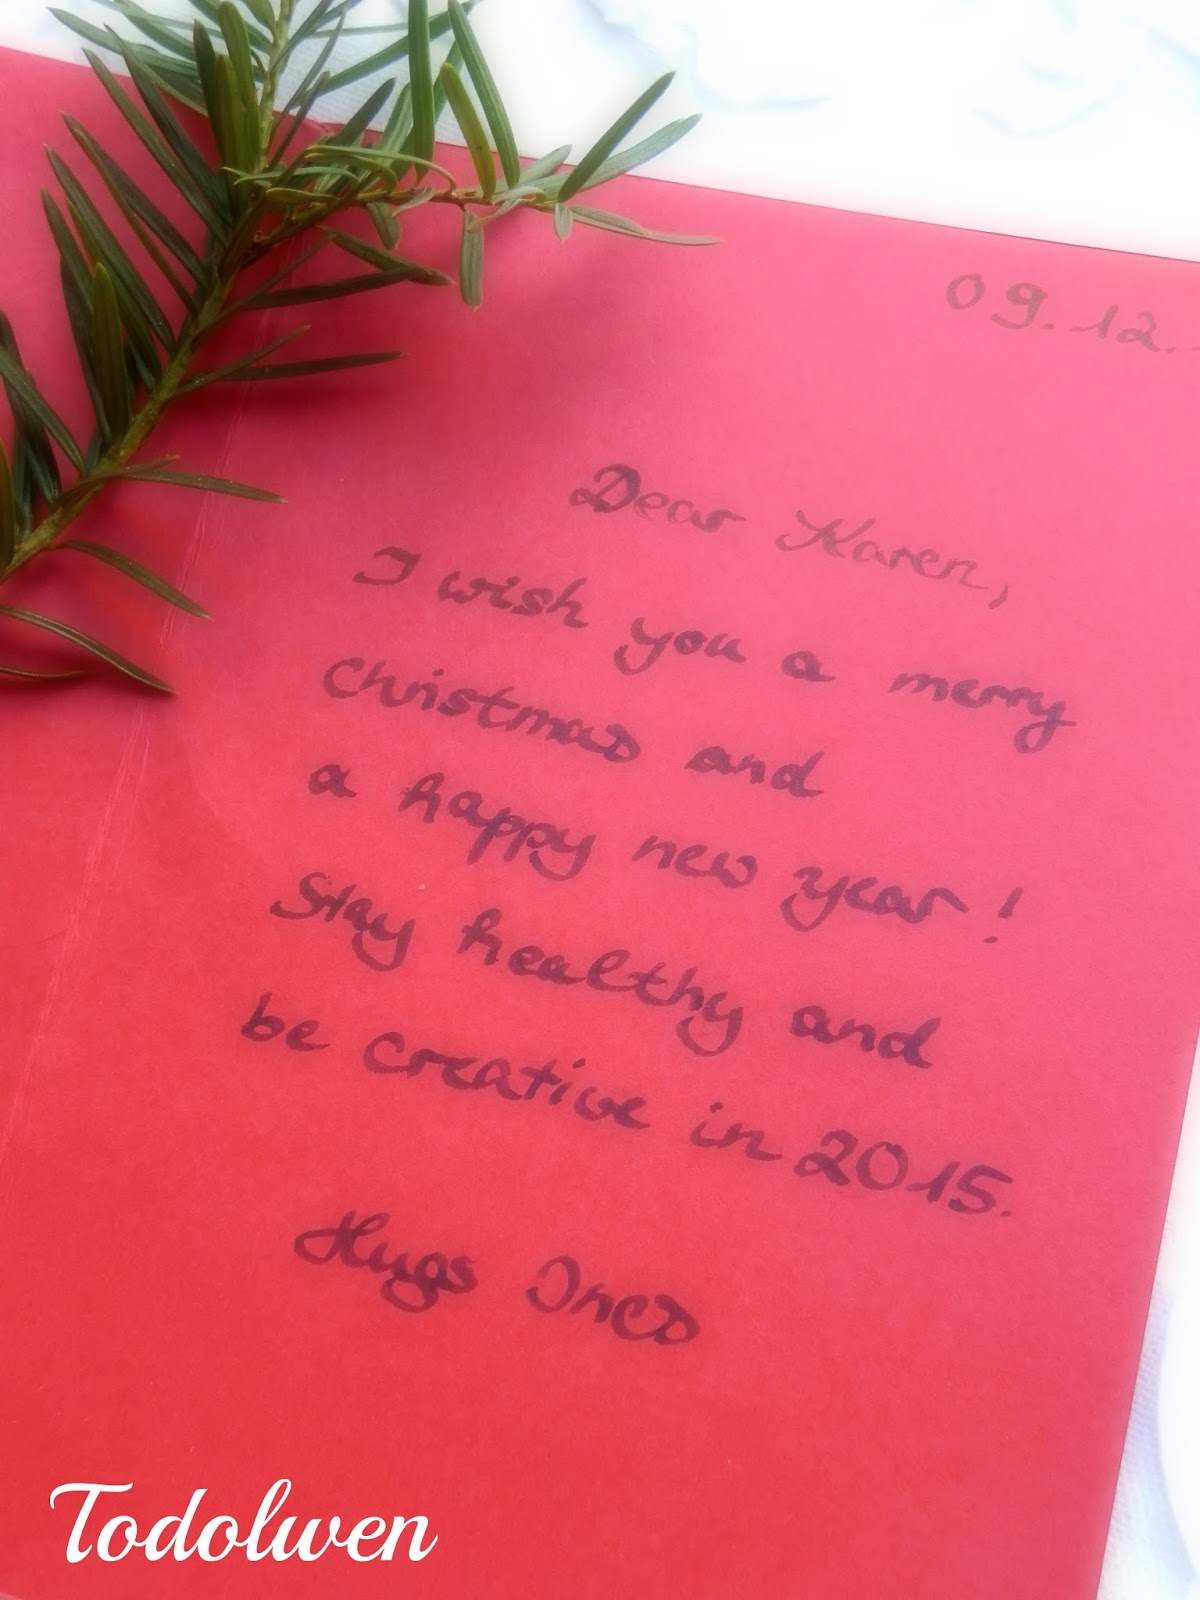 09.12.
Dear Karen,
I wish you a merry
Christmas and
a happy new year!
Stay healthy and
be creative in 2015.
Hugs Ines
Todolwen